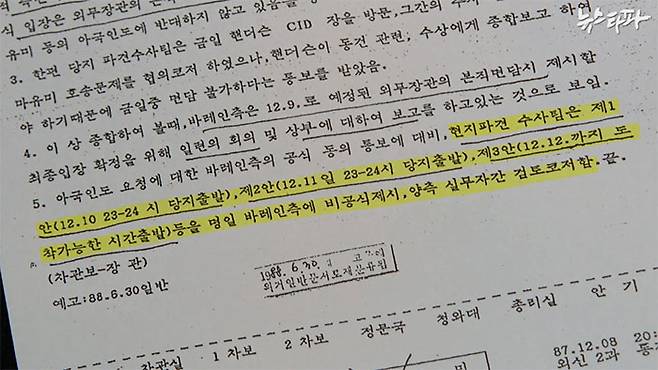 뉴스타파
식 입장은 외무장관이 아국인도에 반대하지 않고 있음을
유미 등의 아국인도에
3. 한편 당지 파견수사팀은 금일 현더슨 CID 장을 방문, 그간의 수사
마유미 호송문제를 협의코저 하였으나, 현더슨이 동건 관련, 수상에게 종합보고 하여
야 하기때문에 금일중 면담 불가하다는 통보를 받았음.
4. 이 상 종합하여 볼때, 바레인측은 12.9.로 예정된 외무장관의 본직면담시 제시할
최종입장 확정을 위해 일련의 회의 및 상부에 대하여 보고를 하고있는 것으로 보임.
5. 아국인도 요청에 대한 바레인측의 공식 동의 통보에 대비, 현지파견 수사팀은 제1
안(12.10 23-24 시 당지출발), 제2안(12.11일 23-24시 당지출발), 제3안(12.12.까지 도
착가능한 시간출발)등을 명일 바레인측에 비공식제시, 양측 실무자간 검토코저함. 끝.
(차관보-장 관)
예고:88.6.30일반
1988.6.30.
의거일반문서로재분류됨
차관실 1 차보 2 차보 정문국 청와대 총리실 안 기
87.12.08 20:
외신 2과